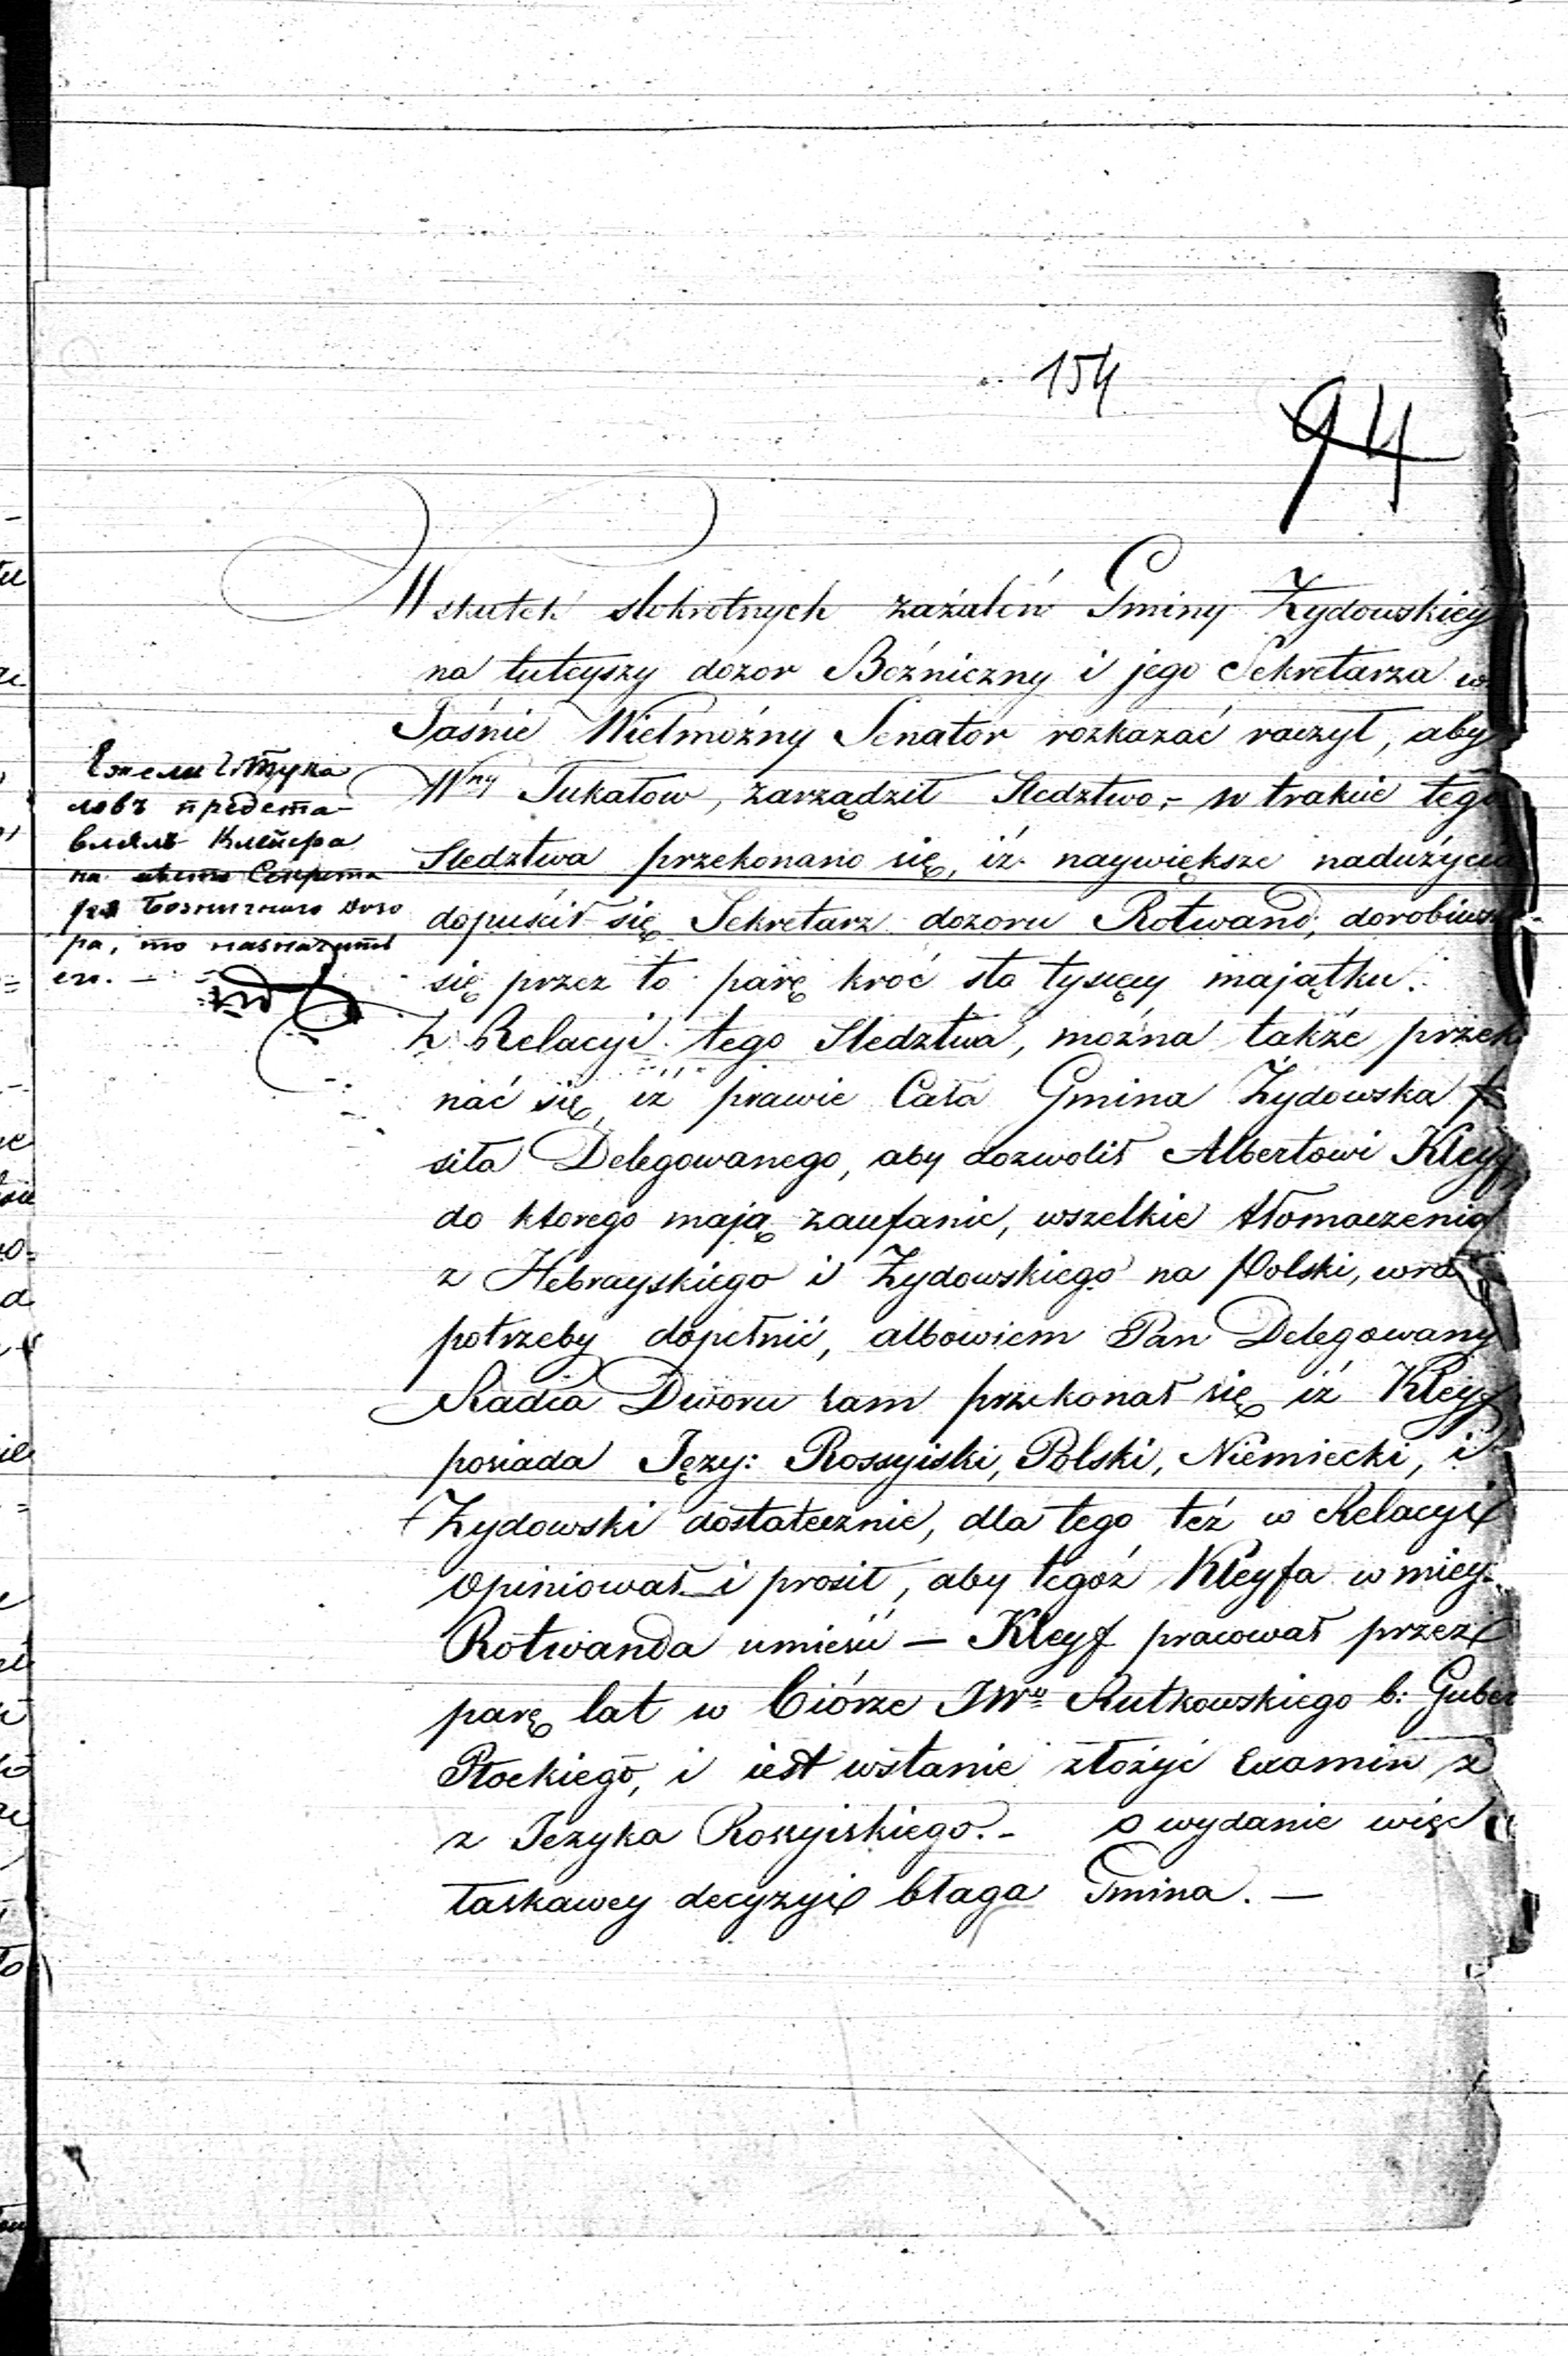 154
94
Wskutek stokrotnych zażaleń Gminy Żydowskiey
na tuteyszy dozor Bożniczny i jego Sekretarza
Jaśnie Wielmożny Senator rozkazać raczył, aby
Wny Tukałow, zarządził Sledztwo,- w trakcie tego
Sledztwa przekonano się, iż naywiększe nadużycia
dopuścił się Sekretarz dozoru Rotwand, dorobiwsz
się przez to parę kroć sto tysięcy majątku.
Z Relacyi tego Sledztwa, można także przeko
nać się, iż prawie Cała Gmina Żydowska
siła Delegowanego, aby dozwolił Albertowi Kleyf
do ktorego mają zaufanie, wszelkie tłomaczenia
z Hebrayskiego i Żydowskiego na Polski, w ra
potrzeby dopełnić, albowiem Pan Delegowany
Radca Dworu sam przekonał się iż Kleyf
posiada Języ: Rossyiski, Polski, Niemiecki, i
Żydowski dostatecznie, dla tego też w Relacyi
Opiniował i prosił, aby tegoż Kleyfa w miey:
Rotwanda umieścić — Kleyf pracował przez
parę lat w biórze JWo Rutkowskiego b: Guber
Płockiego, i iest wstanie złożyć Examin z
z Jezyka Rossyiskiego.- O wydanie więc
łaskawey decyzyi błaga Gmina. —
Ежели Г. Тука
ловъ предста-
влялъ Клейфа
на место Секрета
ря Божничнаго Дозо
ра, то назначить
его. -